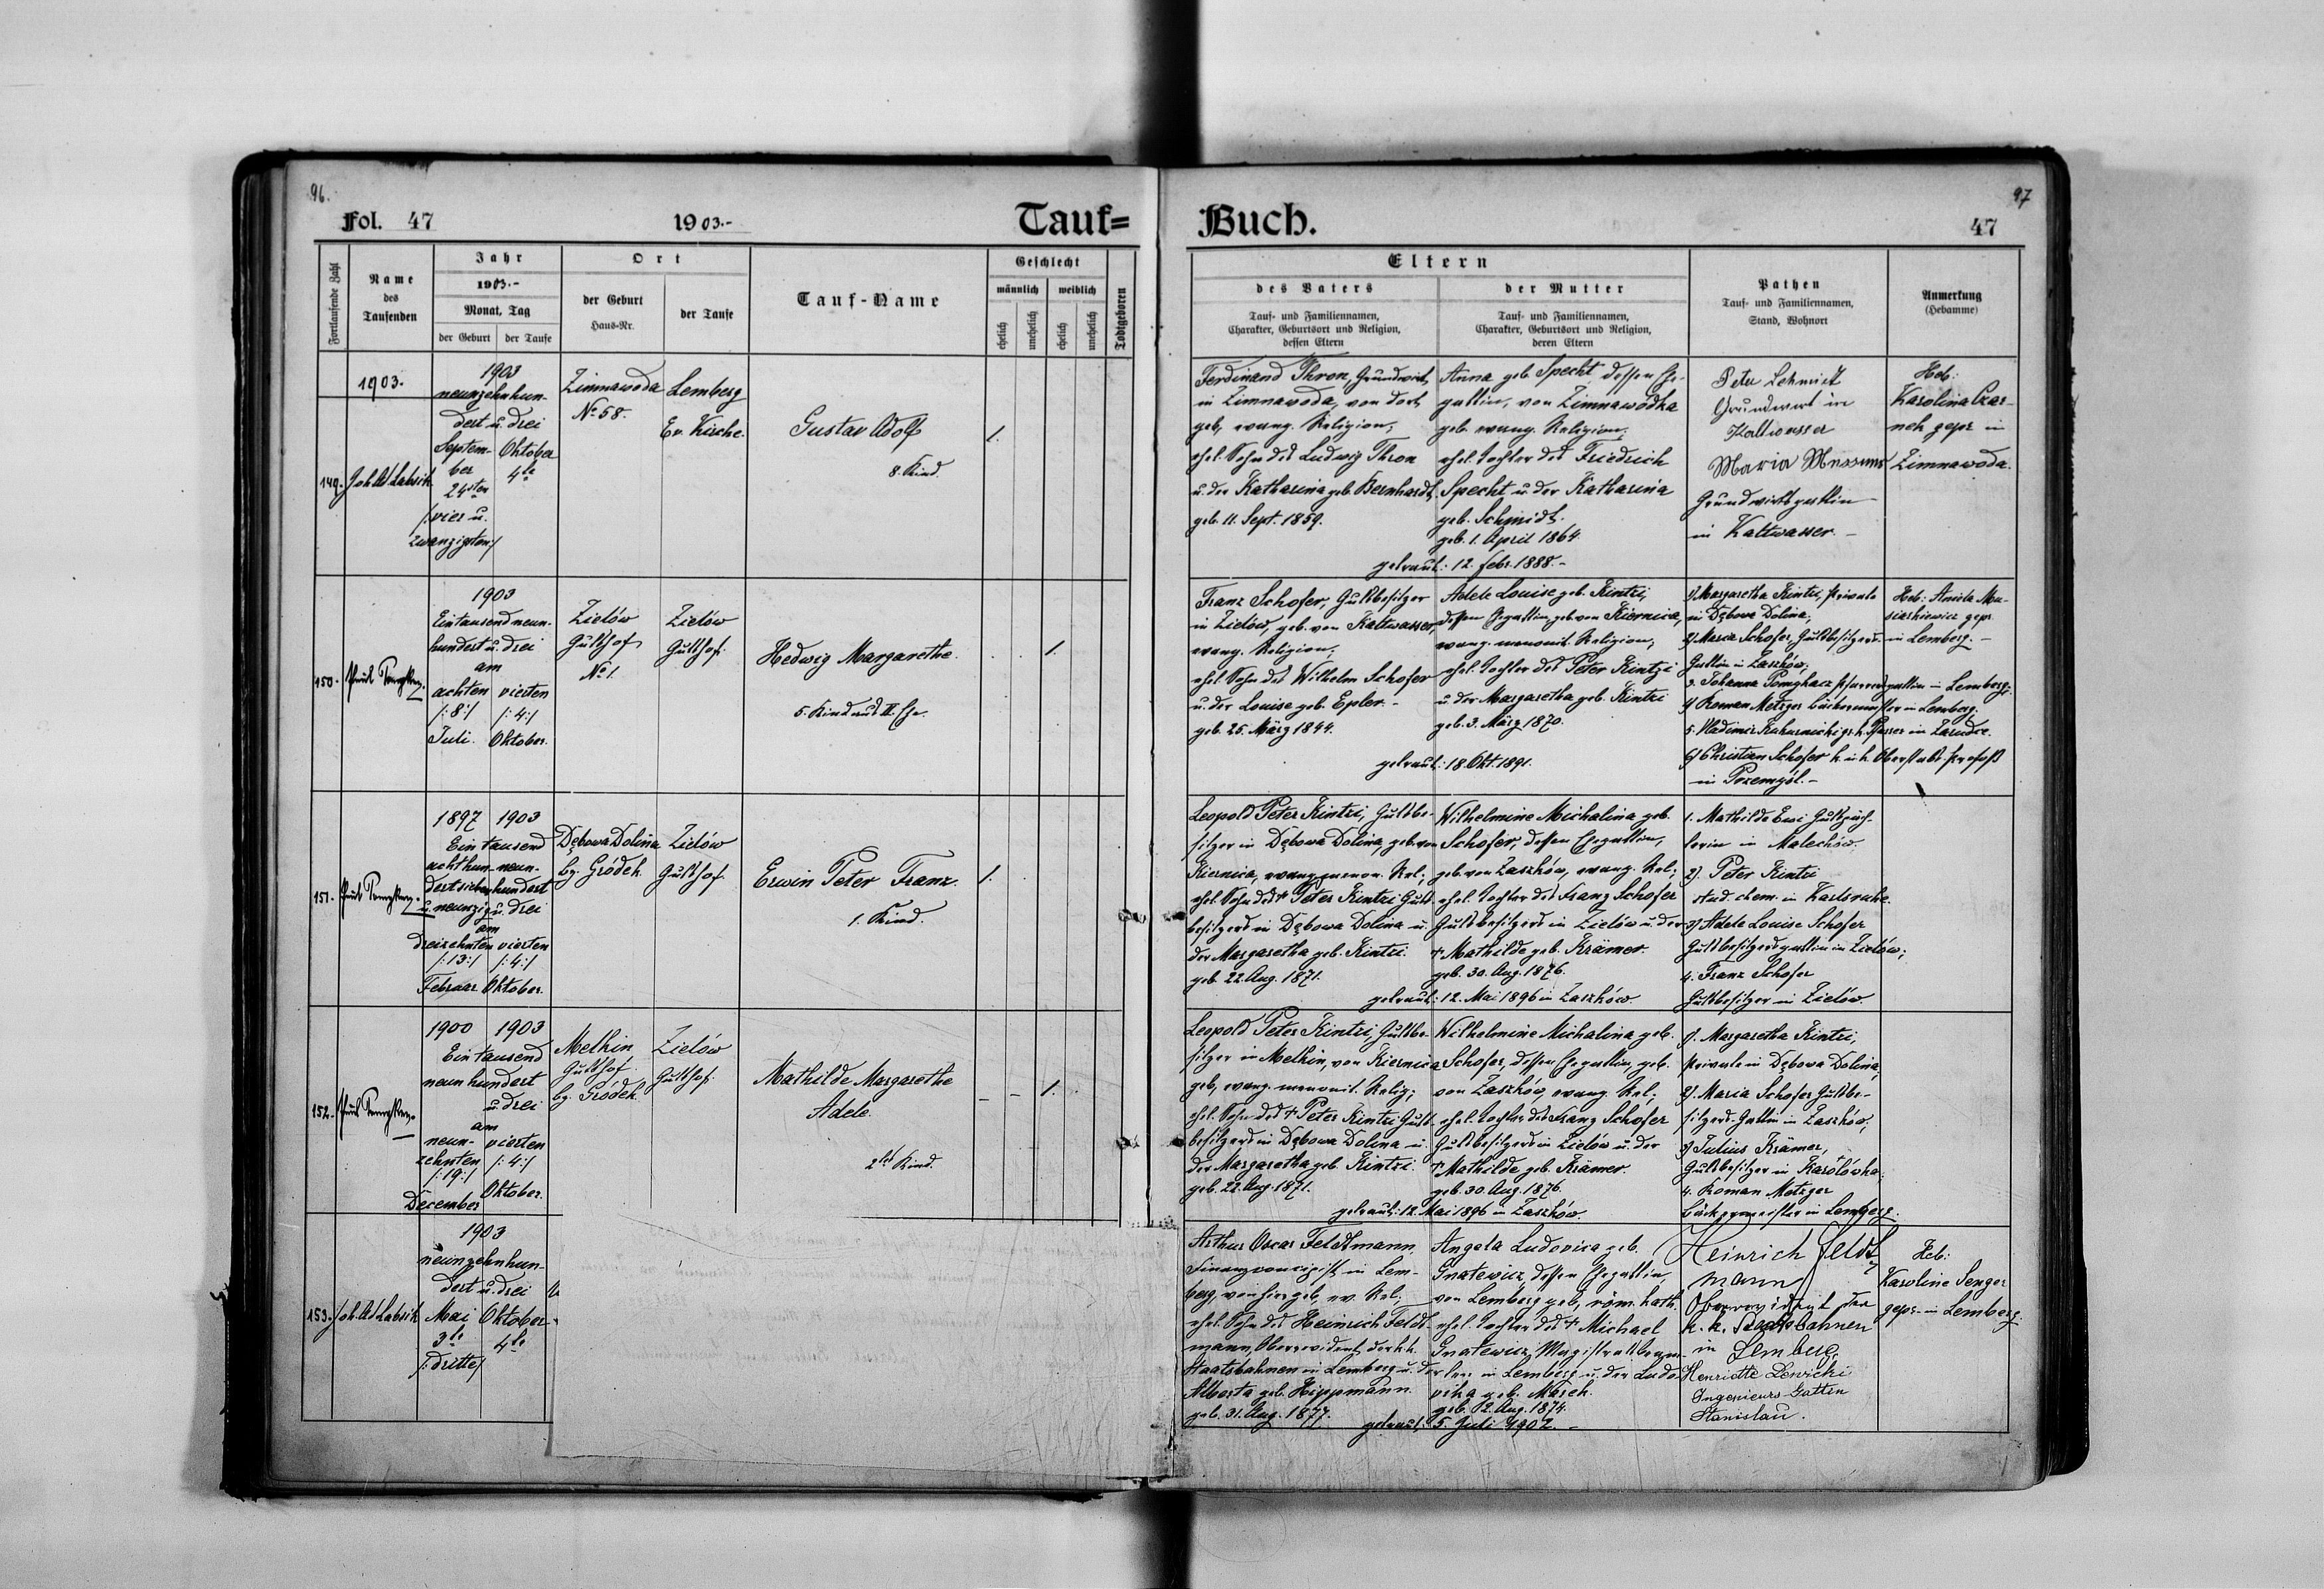 96.
Fol. 47
1903.-
Tauf=
Fortlaufende Zahl
Name
des
Taufenden
Jahr
1903.-
Monat, Tag
der Geburt
der Taufe
Ort
der Geburt
Haus-Nr.
der Taufe
Tauf-Name
Geschlecht
männlich
weiblich
ehelich
unehelich
ehelich
unehelich
Todtgeboren
1903.
149.
1903
neunzehnhun-
dert u. drei
Septem-
ber
24sten
/:vier u.
zwanzigsten:/
Oktober
4te
Zimnawoda
No 58.
Lemberg
Ev. Kirche.
Gustav Adolf
8. Kind.
1.
150.
1903
Eintausend neun-
hundert u. drei
am
achten
/:8:/
Juli.
vierten
/:4:/
Oktober.
Zielów
Gutshof
No 1.
Zielów
Gutshof.
Hedwig Margarethe.
5. Kind aus II. Ehe.
1.
151.
1897 1903
Ein tausend
achthun- neun-
dert sieben hundert
u. neunzig u. drei
am
dreizehnten vierten
/:13:/ /:4:/
Februar Oktober.
Dębowa Dolina
bg. Gródek
Zielów
Gutshof.
Erwin Peter Franz.
1. Kind.
1.
152.
1900 1903
Ein tausend
neun hundert
u. drei
am
neun- vierten
zehnten /:4:/
/:19:/
December Oktober.
Melkin
Gutshof.
bg. Gródek.
Zielów
Gutshof.
Mathilde Margarethe
Adele.
2tes Kind.
1.
153.
1903
neunzehnhun-
dert u. drei
Mai Oktober
3te 4te
/:dritte/
97
Buch.
47
Eltern
des Vaters
Tauf- und Familiennamen,
Charakter, Geburtsort und Religion,
dessen Eltern
der Mutter
Tauf- und Familiennamen,
Charakter, Geburtsort und Religion,
deren Eltern
Pathen
Tauf- und Familiennamen,
Stand, Wohnort
Anmerkung
(Hebamme)
Ferdinand Thron, Grundwirt
in Zimnawoda, von dort
geb, evang. Religion;
ehel. Sohn des Ludwig Thron
u. der Katharina geb. Bernhardt
geb. 11. Sept. 1859.
Anna geb. Specht, dessen Ehe-
gattin, von Zimnawódka
geb. evang. Religion;
ehel. Tochter des Friedrich
Specht u. der Katharina
geb. Schmidt.
geb. 1. April 1864.
getraut: 12. Febr. 1888.-
Peter Schmidt
Grundwirt in
Kaltwasser
Maria
Grundwirtsgattin
in Kaltwasser.-
Heb:
Karolina
gepr. in
Zimnawoda.
Franz Schofer, Gutsbesitzer
in Zielów, geb. von Kaltwasser,
evang. Religion;
ehel. Sohn des Wilhelm Schofer
u. der Louise geb. Epler.-
geb. 25. März 1844.
Adele Louise geb. Kintzi,
dessen Ehegattin, geb. von Kiernica,
evang. menonit. Religion;
ehel. Tochter des Peter Kintzi
u. der Margaretha geb. Kintzi
geb. 3. März 1870.
getraut: 18. Okt. 1891.
1) Margaretha Kintzi, Private
in Dębowa Dolina;
2) Maria Schofer, Gutsbesitzers-
Gattin in Zaszków;
3. Johanna Pfarrersgattin in Lemberg;
4) Roman Metzger Bäckermeister in Lemberg.
5. Vladimir gr. k. Pfarrer in Zarudce.
6) Christian Schofer k. u. k. Oberstabs-Profoß
in Przemyśl.-
Heb: Aniela
gepr.
in Lemberg.-
Leopold Peter Kintzi, Gutsbe-
sitzer in Dębowa Dolina, geb. von
Kiernica, evang. menon. Rel;
ehel. Sohn des + Peter Kintzi Guts-
besitzers in Dębowa Dolina u.
der Margaretha geb. Kintzi.
geb. 22. Aug. 1871.
Wilhelmine Michalina geb.
Schofer, dessen Ehegattin,
geb. von Zaszków, evang. Rel;
ehel. Tochter des Franz Schofer
Gutsbesitzers in Zielów u. der
+ Mathilde geb. Krämer.
geb. 30. Aug. 1876.
getraut: 12. Mai 1896 in Zaszków.
1. Mathilde
in Malechów;
2). Peter Kintzi
stud. chem. in Karlsruhe.
3) Adele Louise Schofer
Gutsbesitzersgattin in Zielów;
4. Franz Schofer
Gutsbesitzer in Zielów.
Leopold Peter Kintzi, Gutsbe-
sitzer in Melkin, von Kiernica
geb, evang. menonit. Relig;
ehel. Sohn des + Peter Kintzi Guts-
besitzers in Dębowa Dolina u.
der Margaretha geb. Kintzi.
geb. 22. Aug. 1871.
Wilhelmine Michalina geb.
Schofer, dessen Ehegattin, geb.
von Zaszków, evang. Rel;
ehel. Tochter des Franz Schofer
Gutsbesitzers in Zielów u. der
+ Mathilde geb. Krämer.
geb. 30. Aug. 1876.
getraut: 12. Mai 1896 in Zaszków.
1. Margaretha Kintzi,
Private in Dębowa Dolina;
2). Maria Schofer Gutsbe-
sitzers-Gattin in Zaszków;
3) Julius Krämer,
Gutsbesitzer in Karolówka;
4. Roman Metzger
Bäckermeister in Lemberg.
Arthur Oscar Feldtmann,
Finanzconcipist in Lem-
berg, von hier geb, ev. Rel;
ehel. Sohn des Heinrich Feldt-
mann, Oberrevident der k. k.
Staatsbahnen in Lemberg u. der
Alberta geb. Hippmann.
geb. 31. Aug. 1877.
Angela Ludovica geb.
Gnatewicz, dessen Ehegattin,
von Lemberg geb, röm. kath.
ehel. Tochter des + Michael
Gnatewicz, Magistratsbeam-
ten in Lemberg u. der Ludo-
vika geb. Masch.
geb. 2. Aug. 1874.
getraut, 5. Juli 1902.-
Heinrich Feldt-
mann
Oberrevident der
k. k. Staatsbahnen
in Lemberg,
Henriette Lewicki
Ingenieurs-Gattin
Stanislau.
Heb:
Karoline Senger
gepr. in Lemberg.